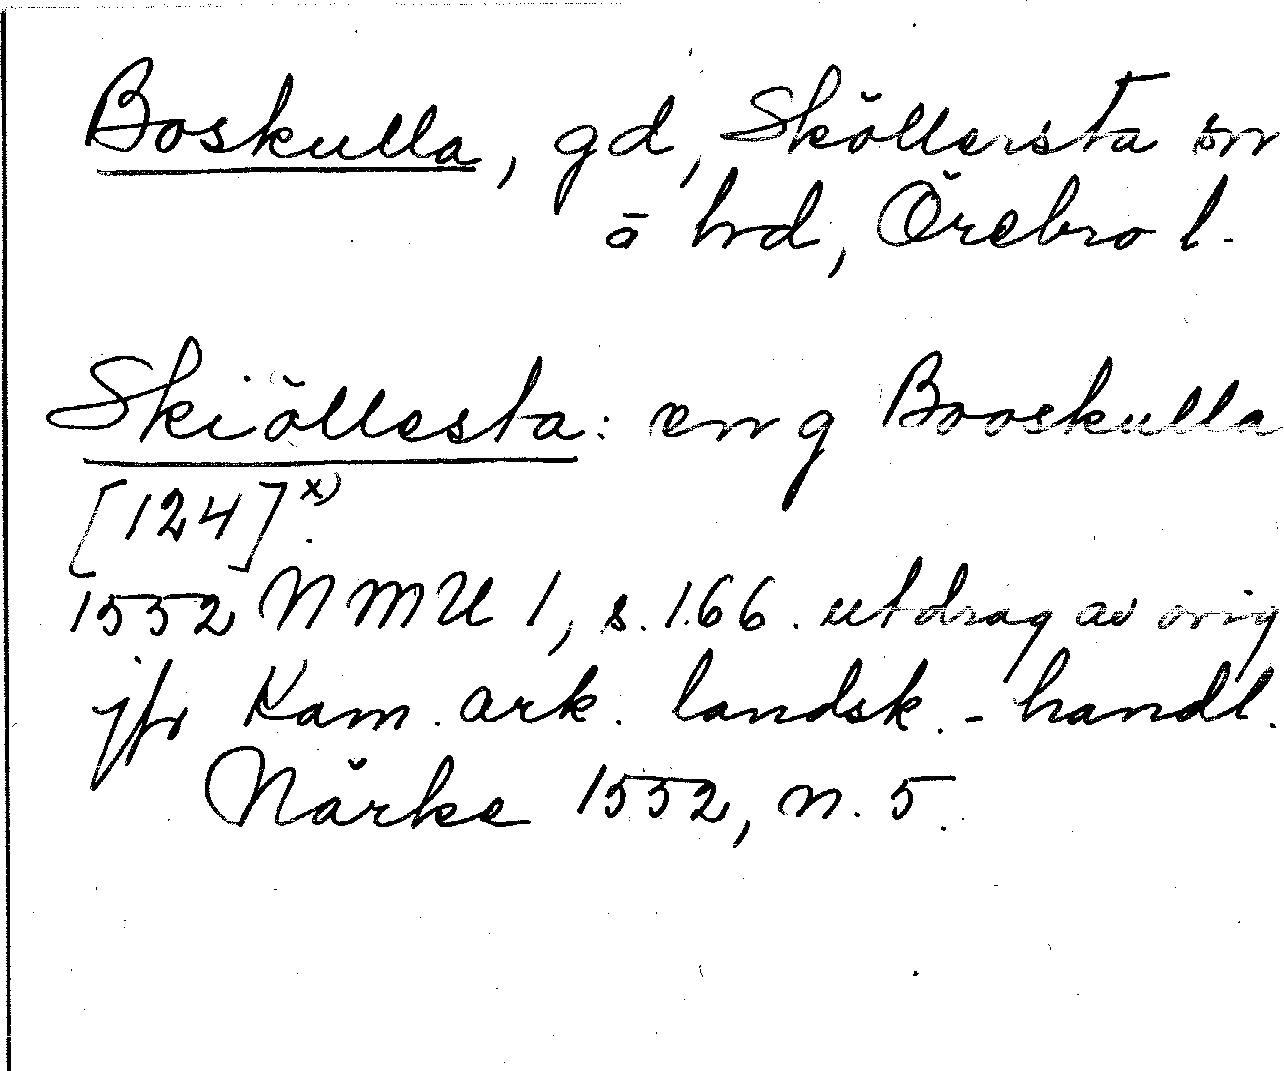 Boskulla, gd, Sköllersta sn
o hd, Örebro l.
Skiöllesta: en g Booskulla
[124]x)
1552 NMU 1, s. 166. utdrag av orig
jfr Kam. ark. landsk.-handl.
Närke 1552, n. 5.